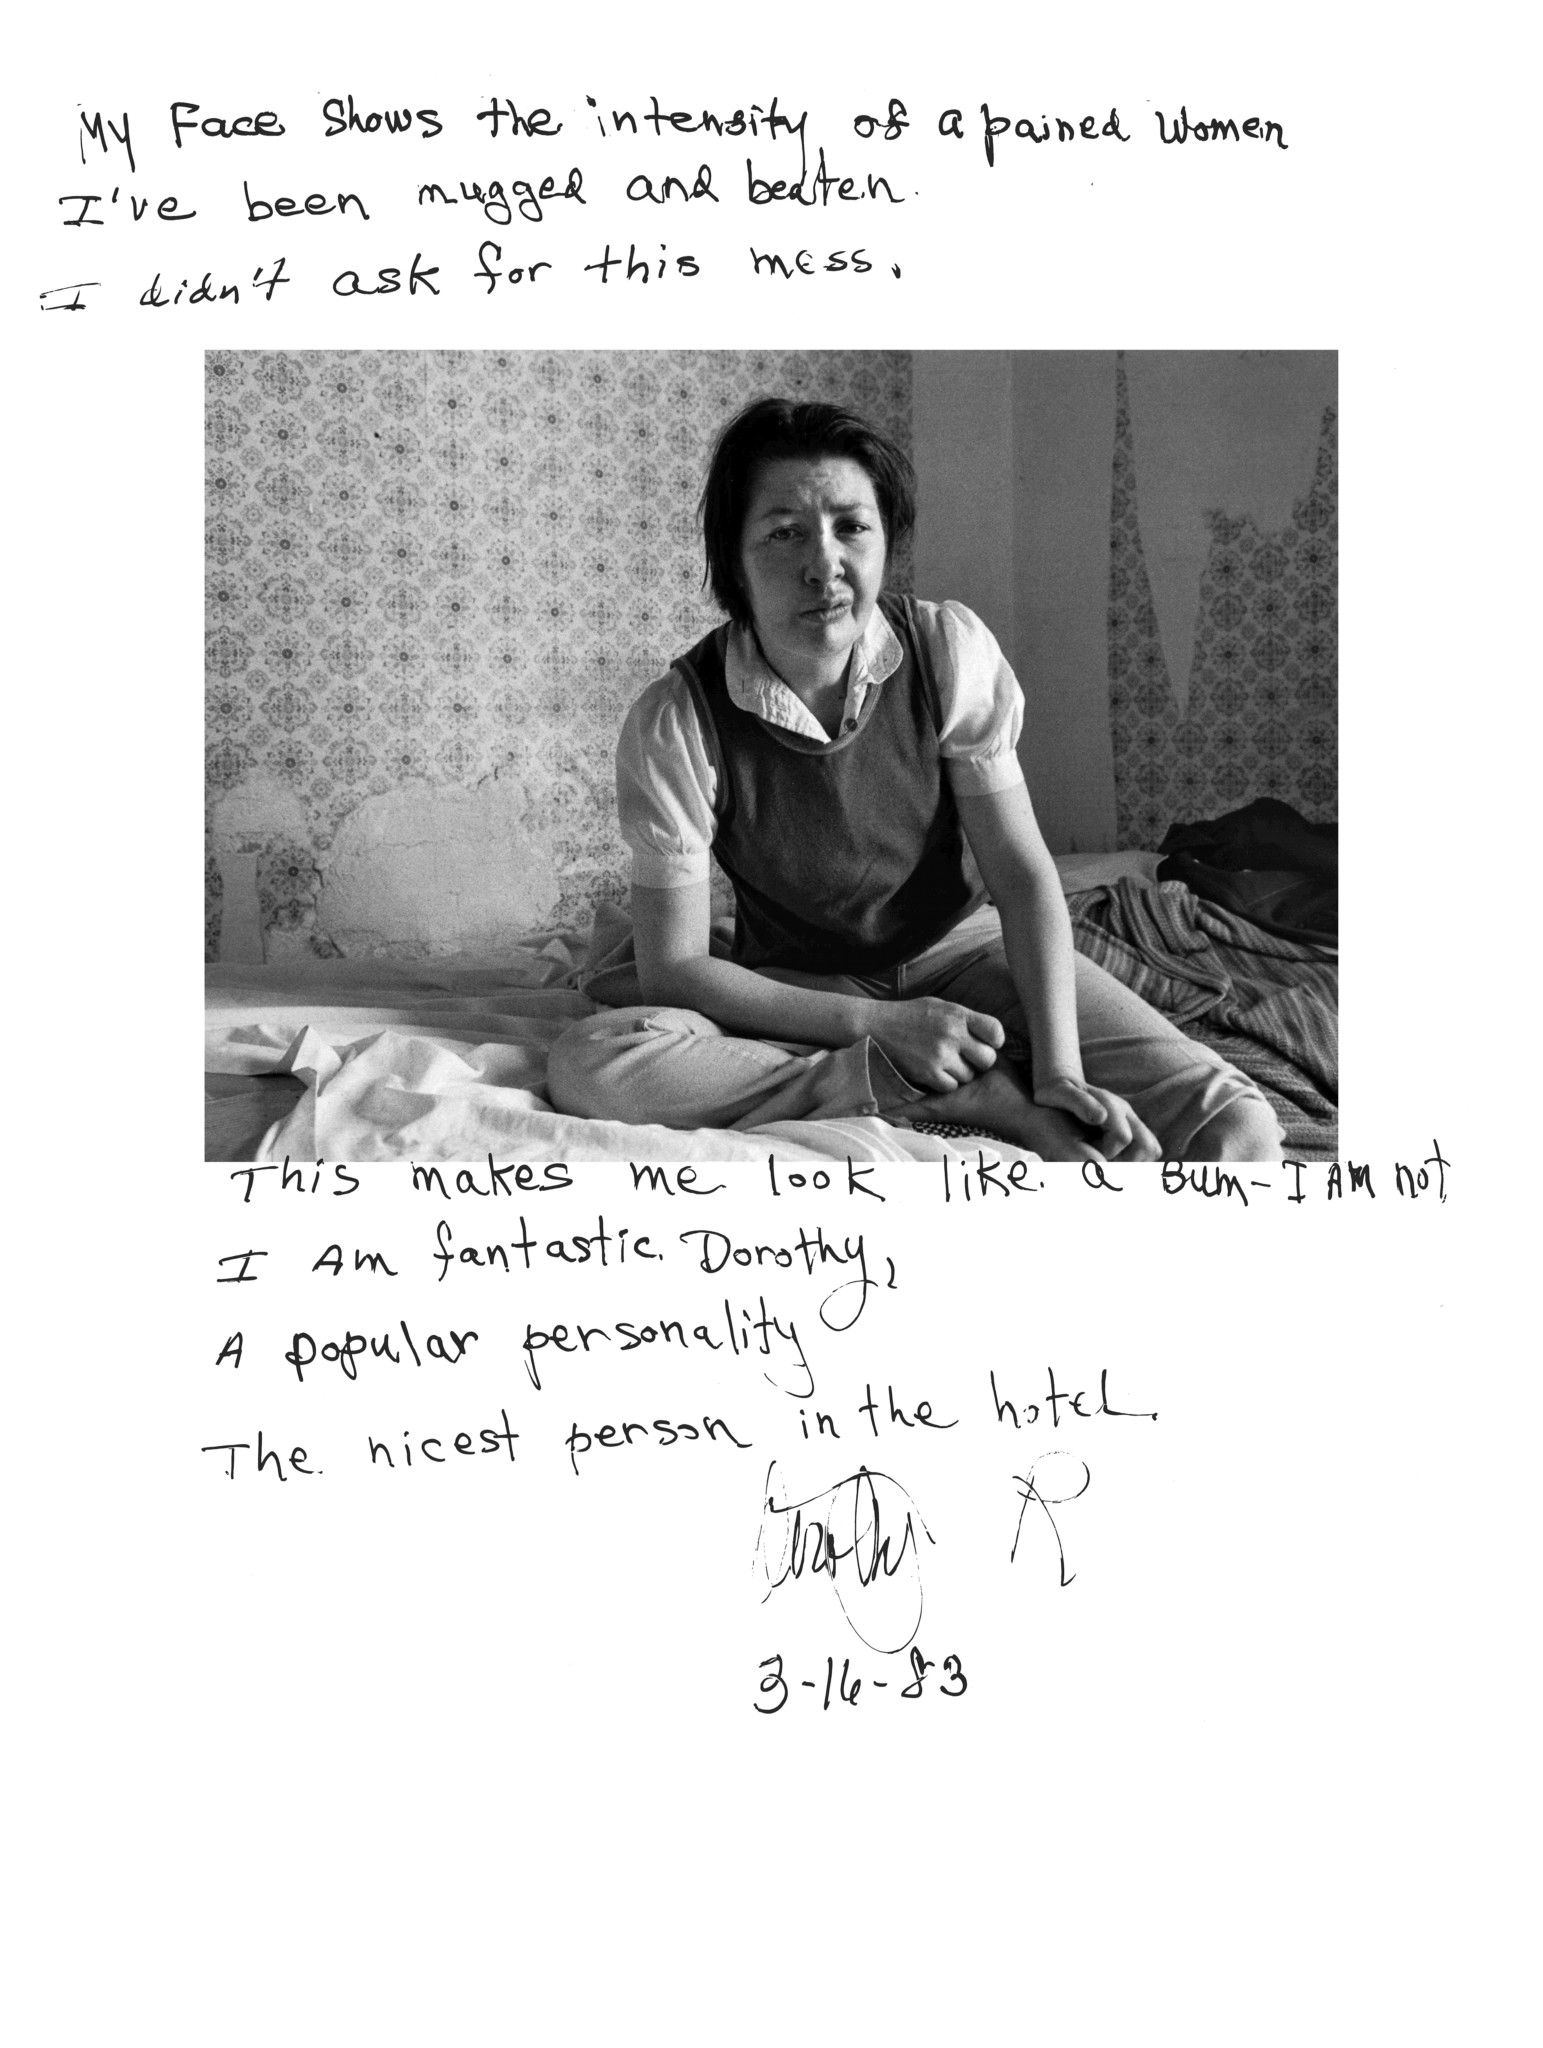 My Face Shows the intensity of a pained Women
I've been mugged and beaten.
I didn't ask for this mess.
This makes me look like a Bum - I AM not
I AM fantastic. Dorothy,
A popular personality
The nicest person in the hotel.
Dorothy R
3-16-83